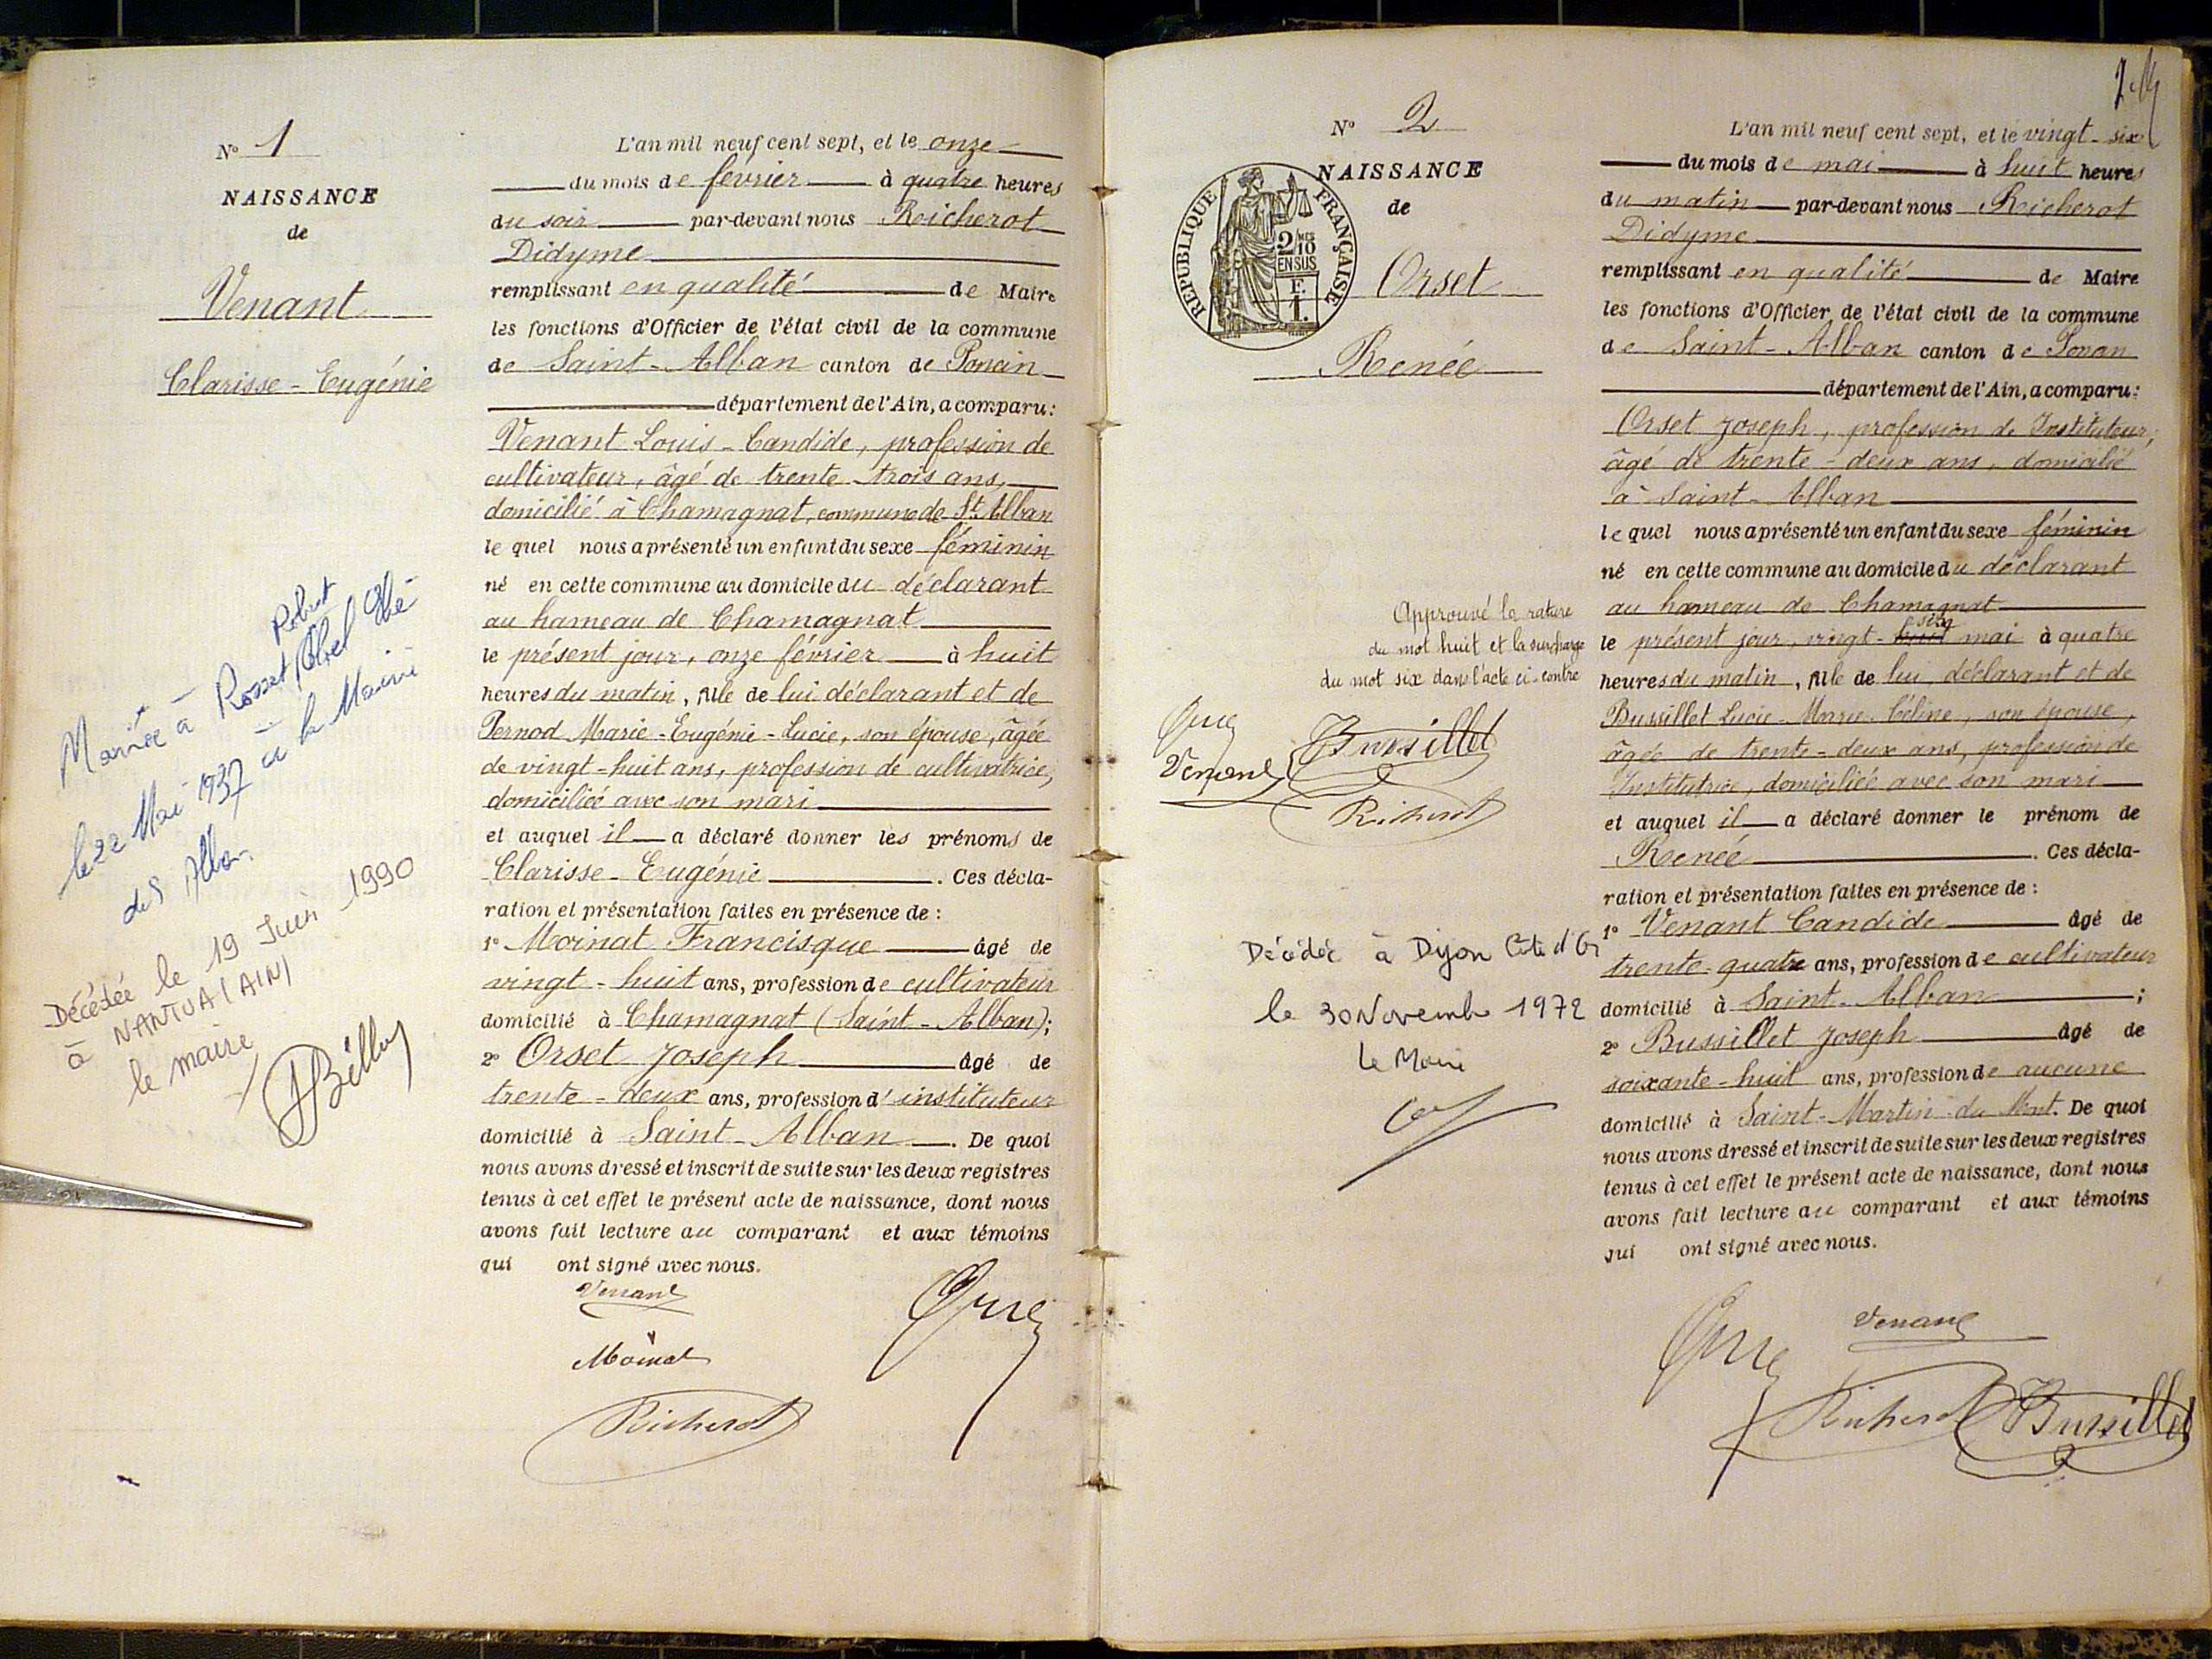 N° 1
NAISSANCE
de
Venant
Clarisse - Eugénie
Robert
Mariée à Rosset
le 22 Mai 1937 à la Mairie
de S Alban
Décédée le 19 Juin 1990
à NANTUA (AIN)
le maire
L'an mil neuf cent sept, et le onze
du mois de février à quatre heures
du soir par-devant nous Richerot
Didyme
remplissant en qualité de Maire
les fonctions d'Officier de l'état civil de la commune
de Saint-Alban canton de Poncin
département de l'Ain, a comparu:
Venant Louis-Candide, profession de
cultivateur, âgé de trente-trois ans,
domicilié à Chamagnat, commune de St Alban
le quel nous a présenté un enfant du sexe féminin
né en cette commune au domicile du déclarant
au hameau de Chamagnat
le présent jour, onze février à huit
heures du matin, fille de lui déclarant et de
Pernod Marie-Eugénie-Lucie, son épouse, âgée
de vingt-huit ans, profession de cultivatrice,
domiciliée avec son mari
et auquel il a déclaré donner les prénoms de
Clarisse-Eugénie. Ces décla-
ration et présentation faites en présence de :
1° Moinat Francisque âgé de
vingt-huit ans, profession de cultivateur
domicilié à Chamagnat (Saint-Alban);
2° Orset Joseph âgé de
trente-deux ans, profession d'instituteur
domicilié à Saint-Alban. De quoi
nous avons dressé et inscrit de suite sur les deux registres
tenus à cet effet le présent acte de naissance, dont nous
avons fait lecture au comparant et aux témoins
qui ont signé avec nous.
Venant
Moinat
Richerot
N° 2
NAISSANCE
de
REPUBLIQUE FRANÇAISE
2/10
EN SUS
F.
1.
Orset
Renée
Approuvé la rature
du mot huit et la surcharge
du mot six dans l'acte ci-contre
Venant
Bussillet
Richerot
Décédée à Dijon Côte d'Or
le 30 Novembre 1972
Le Maire
L'an mil neuf cent sept, et le vingt-six
du mois de mai à huit heures
du matin par-devant nous Richerot
Didyme
remplissant en qualité de Maire
les fonctions d'Officier de l'état civil de la commune
de Saint-Alban canton de Poncin
département de l'Ain, a comparu:
Orset Joseph, profession de Instituteur,
âgé de trente-deux ans, domicilié
à Saint-Alban
le quel nous a présenté un enfant du sexe féminin
né en cette commune au domicile du déclarant
au hameau de Chamagnat
le présent jour, vingt-huit six mai à quatre
heures du matin, fille de lui déclarant et de
Bussillet Lucie-Marie-Céline, son épouse,
âgée de trente-deux ans, profession de
Institutrice, domiciliée avec son mari
et auquel il a déclaré donner le prénom de
Renée. Ces décla-
ration et présentation faites en présence de :
1° Venant Candide âgé de
trente-quatre ans, profession de cultivateur
domicilié à Saint-Alban ;
2° Bussillet Joseph âgé de
soixante-huit ans, profession de aucune
domicilié à Saint-Martin-du-Mont. De quoi
nous avons dressé et inscrit de suite sur les deux registres
tenus à cet effet le présent acte de naissance, dont nous
avons fait lecture au comparant et aux témoins
qui ont signé avec nous.
Venant
Richerot
Bussillet